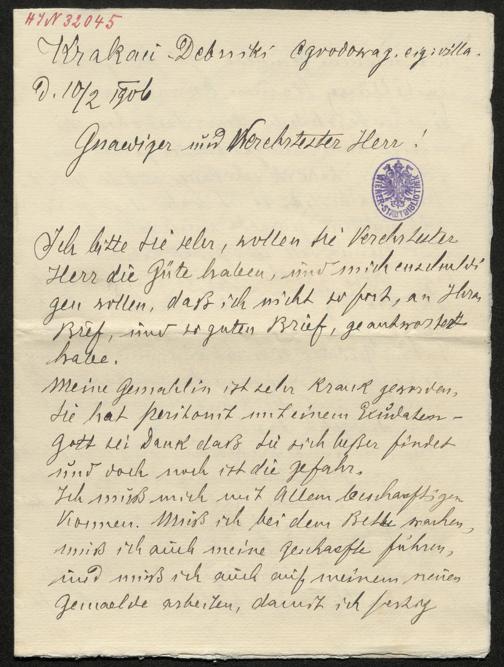 HIN 32045
Krakau - Debniki Ogrodowa g. eig. villa.
d. 10/2 1906
Gnaediger und Verehrtester Herr!
WIENER-STADTBIBLIOTHEK
Ich bitte Sie sehr, wollen Sie Verehrtester
Herr die Güte haben, und mich enschuldi
gen wollen, daß ich nicht so fort, an Ihren
Brief, und so guten Brief, geantwortet
habe.
Meine Gemahlin ist sehr krank geworden,
Sie hat peritonit mit einem Exudaten -
Gott sei Dank daß Sie sich beßer findet
und doch noch ist die gefahr.
Ich muß mich mit Allem beschaeftigen
Kommen. Muß ich bei dem Bette wachen,
muß ich auch meine geschaefte führen,
und muß ich auch auf meinem neuen
Gemaelde arbeiten, damit ich